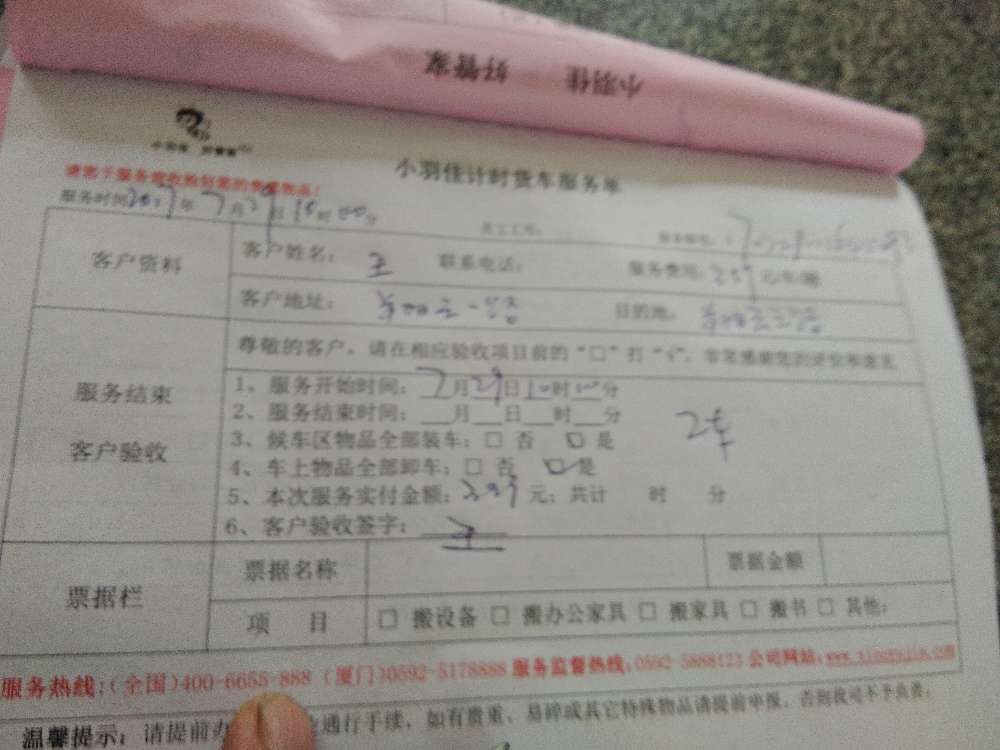 小羽佳 好管家
小羽佳 好管家
小羽佳计时货车服务单
请您于服务前收拾好您的贵重物品!
服务时间2017年7月29日10时00分
员工工号:
客户资料
客户姓名: 王 联系电话: 服务费用: 元/车/趟
客户地址: 目的地:
服务结束
客户验收
尊敬的客户,请在相应验收项目前的“□”打“√”,非常感谢您的评价和意见
1、服务开始时间:7月29日10时00分
2、服务结束时间:__月__日__时__分
3、候车区物品全部装车:□ 否 □ 是
4、车上物品全部卸车:□ 否 □是
2车
5、本次服务实付金额: 元;共计 时 分
6、客户验收签字: 王
票据栏
票据名称 票据金额
项 目 □ 搬设备 □ 搬办公家具 □ 搬家具 □ 搬书 □ 其他:
服务热线:(全国)400-6655-888 (厦门)0592-5178888 服务监督热线:0592-5888123 公司网站:www.xiaoyujia.com
温馨提示:请提前办 通行手续,如有贵重、易碎或其它特殊物品请提前申报,否则我司不予负责。